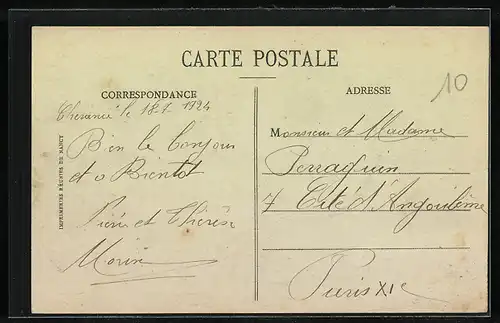 CARTE POSTALE
CORRESPONDANCE
ADRESSE
10
le 18-7 1924
Bien le Bonjour
et a Bientot
et Thérèse
Morin
Monsieur et Madame
Perraguin
7 Cité d'Angoulême
Paris XIe
IMPRIMERIES RÉUNIES DE NANCY